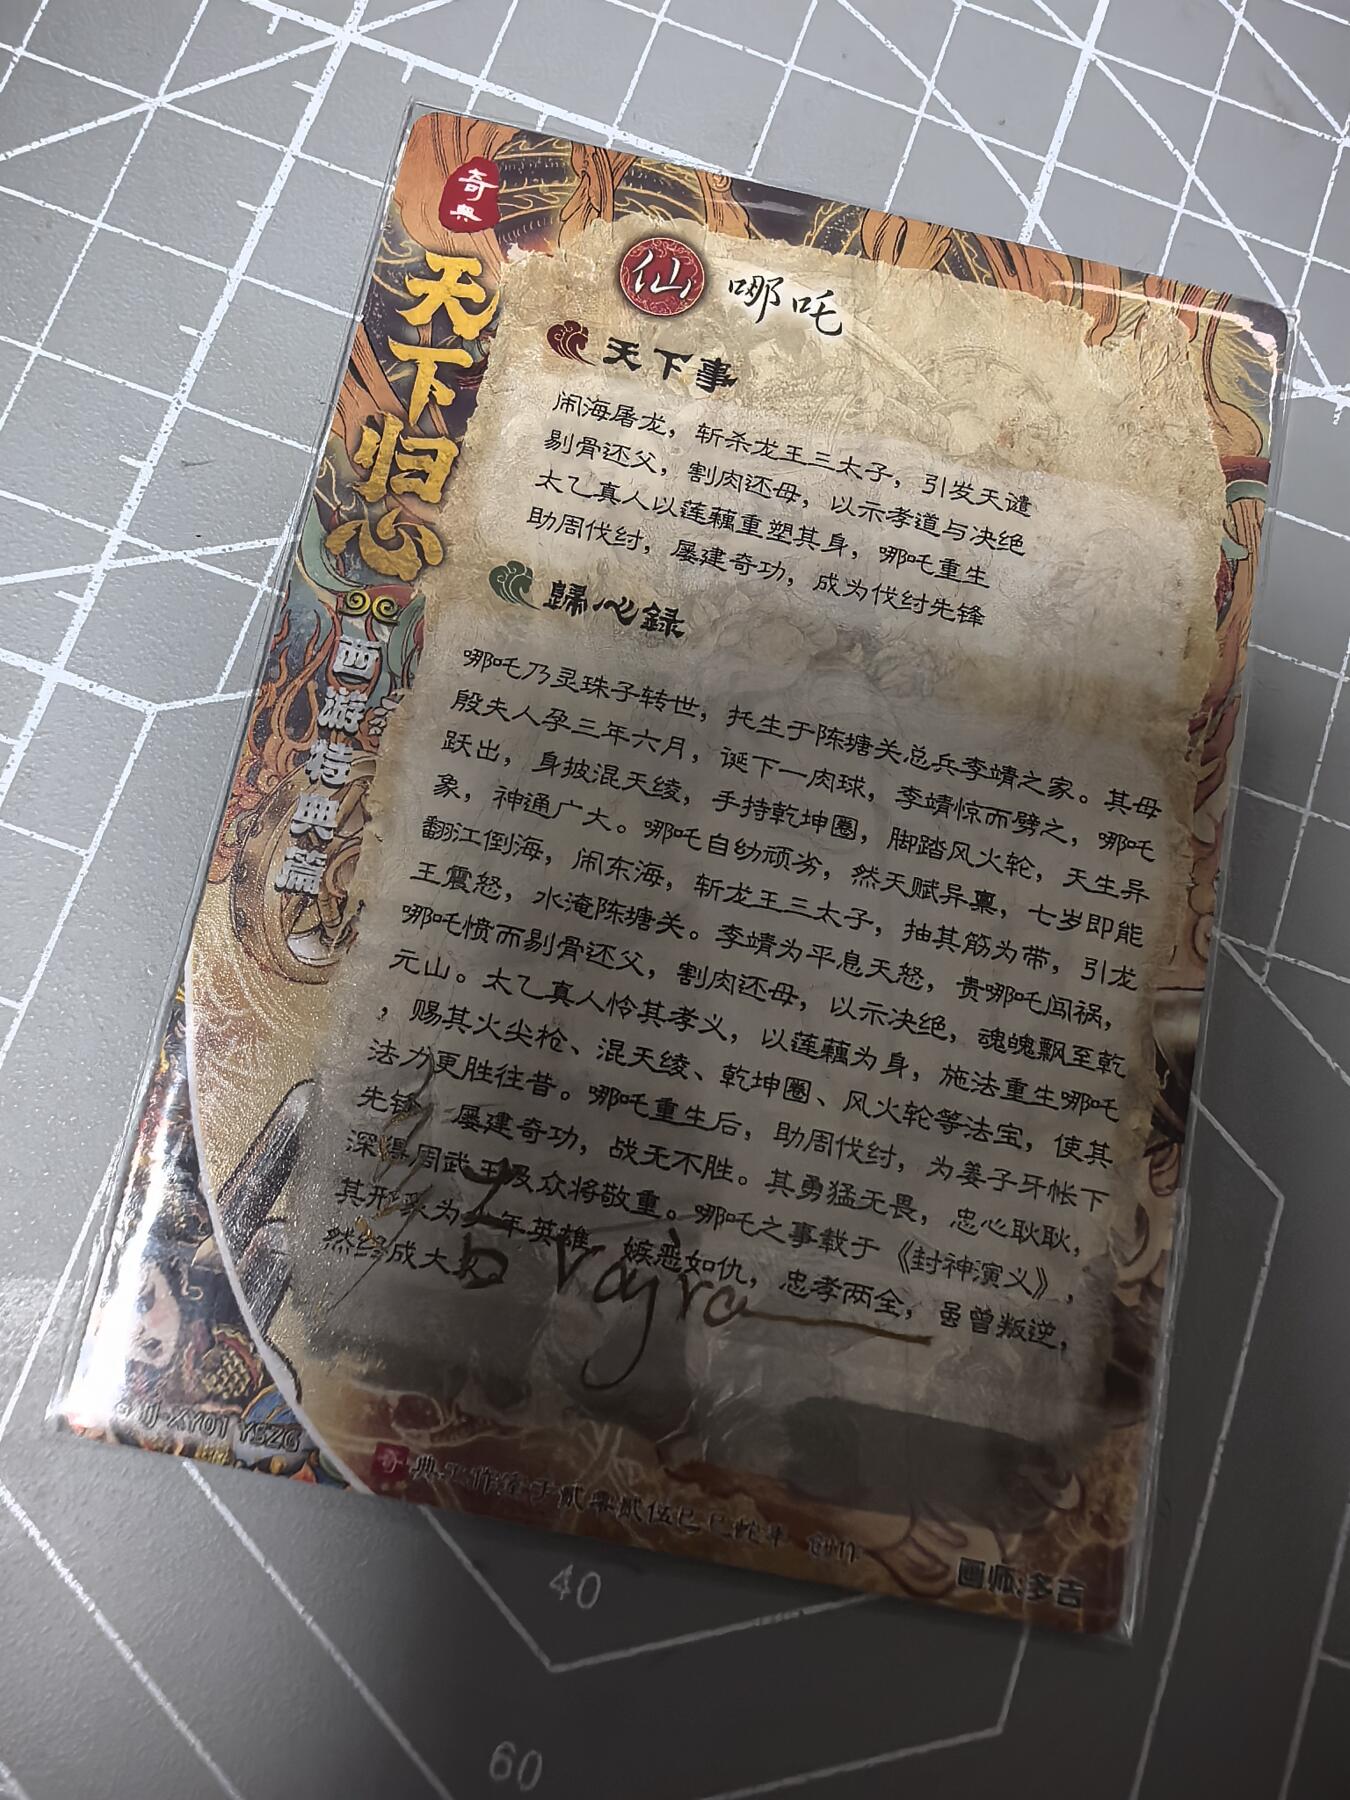 奇典
天下归心
西游特典篇
仙 哪吒
天下事
闹海屠龙，斩杀龙王三太子，引发天谴
剔骨还父，割肉还母，以示孝道与决绝
太乙真人以莲藕重塑其身，哪吒重生
助周伐纣，屡建奇功，成为伐纣先锋
歸心録
哪吒乃灵珠子转世，托生于陈塘关总兵李靖之家。其母
殷夫人孕三年六月，诞下一肉球，李靖惊而劈之，哪吒
跃出，身披混天绫，手持乾坤圈，脚踏风火轮，天生异
象，神通广大。哪吒自幼顽劣，然天赋异禀，七岁即能
翻江倒海，闹东海，斩龙王三太子，抽其筋为带，引龙
王震怒，水淹陈塘关。李靖为平息天怒，责哪吒闯祸，
哪吒愤而剔骨还父，割肉还母，以示决绝，魂魄飘至乾
元山。太乙真人怜其孝义，以莲藕为身，施法重生哪吒
，赐其火尖枪、混天绫、乾坤圈、风火轮等法宝，使其
法力更胜往昔。哪吒重生后，助周伐纣，为姜子牙帐下
先锋，屡建奇功，战无不胜。其勇猛无畏，忠心耿耿，
深得周武王及众将敬重。哪吒之事载于《封神演义》，
其形象为少年英雄，嫉恶如仇，忠孝两全，虽曾叛逆，
然终成大义
Vajra
XY01 YSZG
奇典工作室于贰零贰伍乙巳蛇年 创作
画师:多吉
40
60